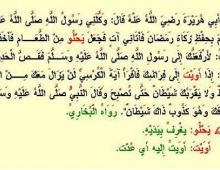 أَبِي هُرَيْرَةَ رَضِيَ اللَّهُ عَنْهُ قَالَ: وَكَّلَنِي رَسُولُ اللَّهِ صَلَّى اللَّهُ عَلَيْهِ
بِحِفْظِ زَكَاةِ رَمَضَانَ فَأَتَانِي آتٍ فَجَعَلَ يَحْثُو مِنَ الطَّعَامِ فَأَخَذْ
: لَأَرْفَعَنَّكَ إِلَى رَسُولِ اللَّهِ صَلَّى اللَّهُ عَلَيْهِ وَسَلَّمَ فَقَصَّ الْحَدِ
: إِذَا أَوَيْتَ إِلَى فِرَاشِكَ فَاقْرَأْ آيَةَ الْكُرْسِيِّ لَنْ يَزَالَ مَعَكَ مِنَ اللَّهِ
وَلَا يَقْرَبُكَ شَيْطَانٌ حَتَّى تُصْبِحَ وَقَالَ النَّبِيُّ صَلَّى اللَّهُ عَلَيْهِ وَسَ
وَهُوَ كَذُوبٌ ذَاكَ شَيْطَانٌ. رَوَاهُ الْبُخَارِيُّ.
يَحْثُو: يَغْرِفُ بِيَدَيْهِ.
أَوَيْتَ: أَوَيْتُ إِلَيْهِ أَيْ عُدْتُ.